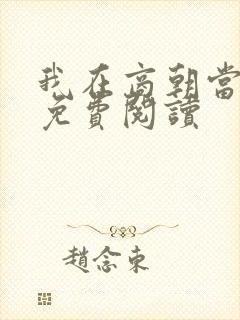 我在高朝當
免費閱讀
趙念東